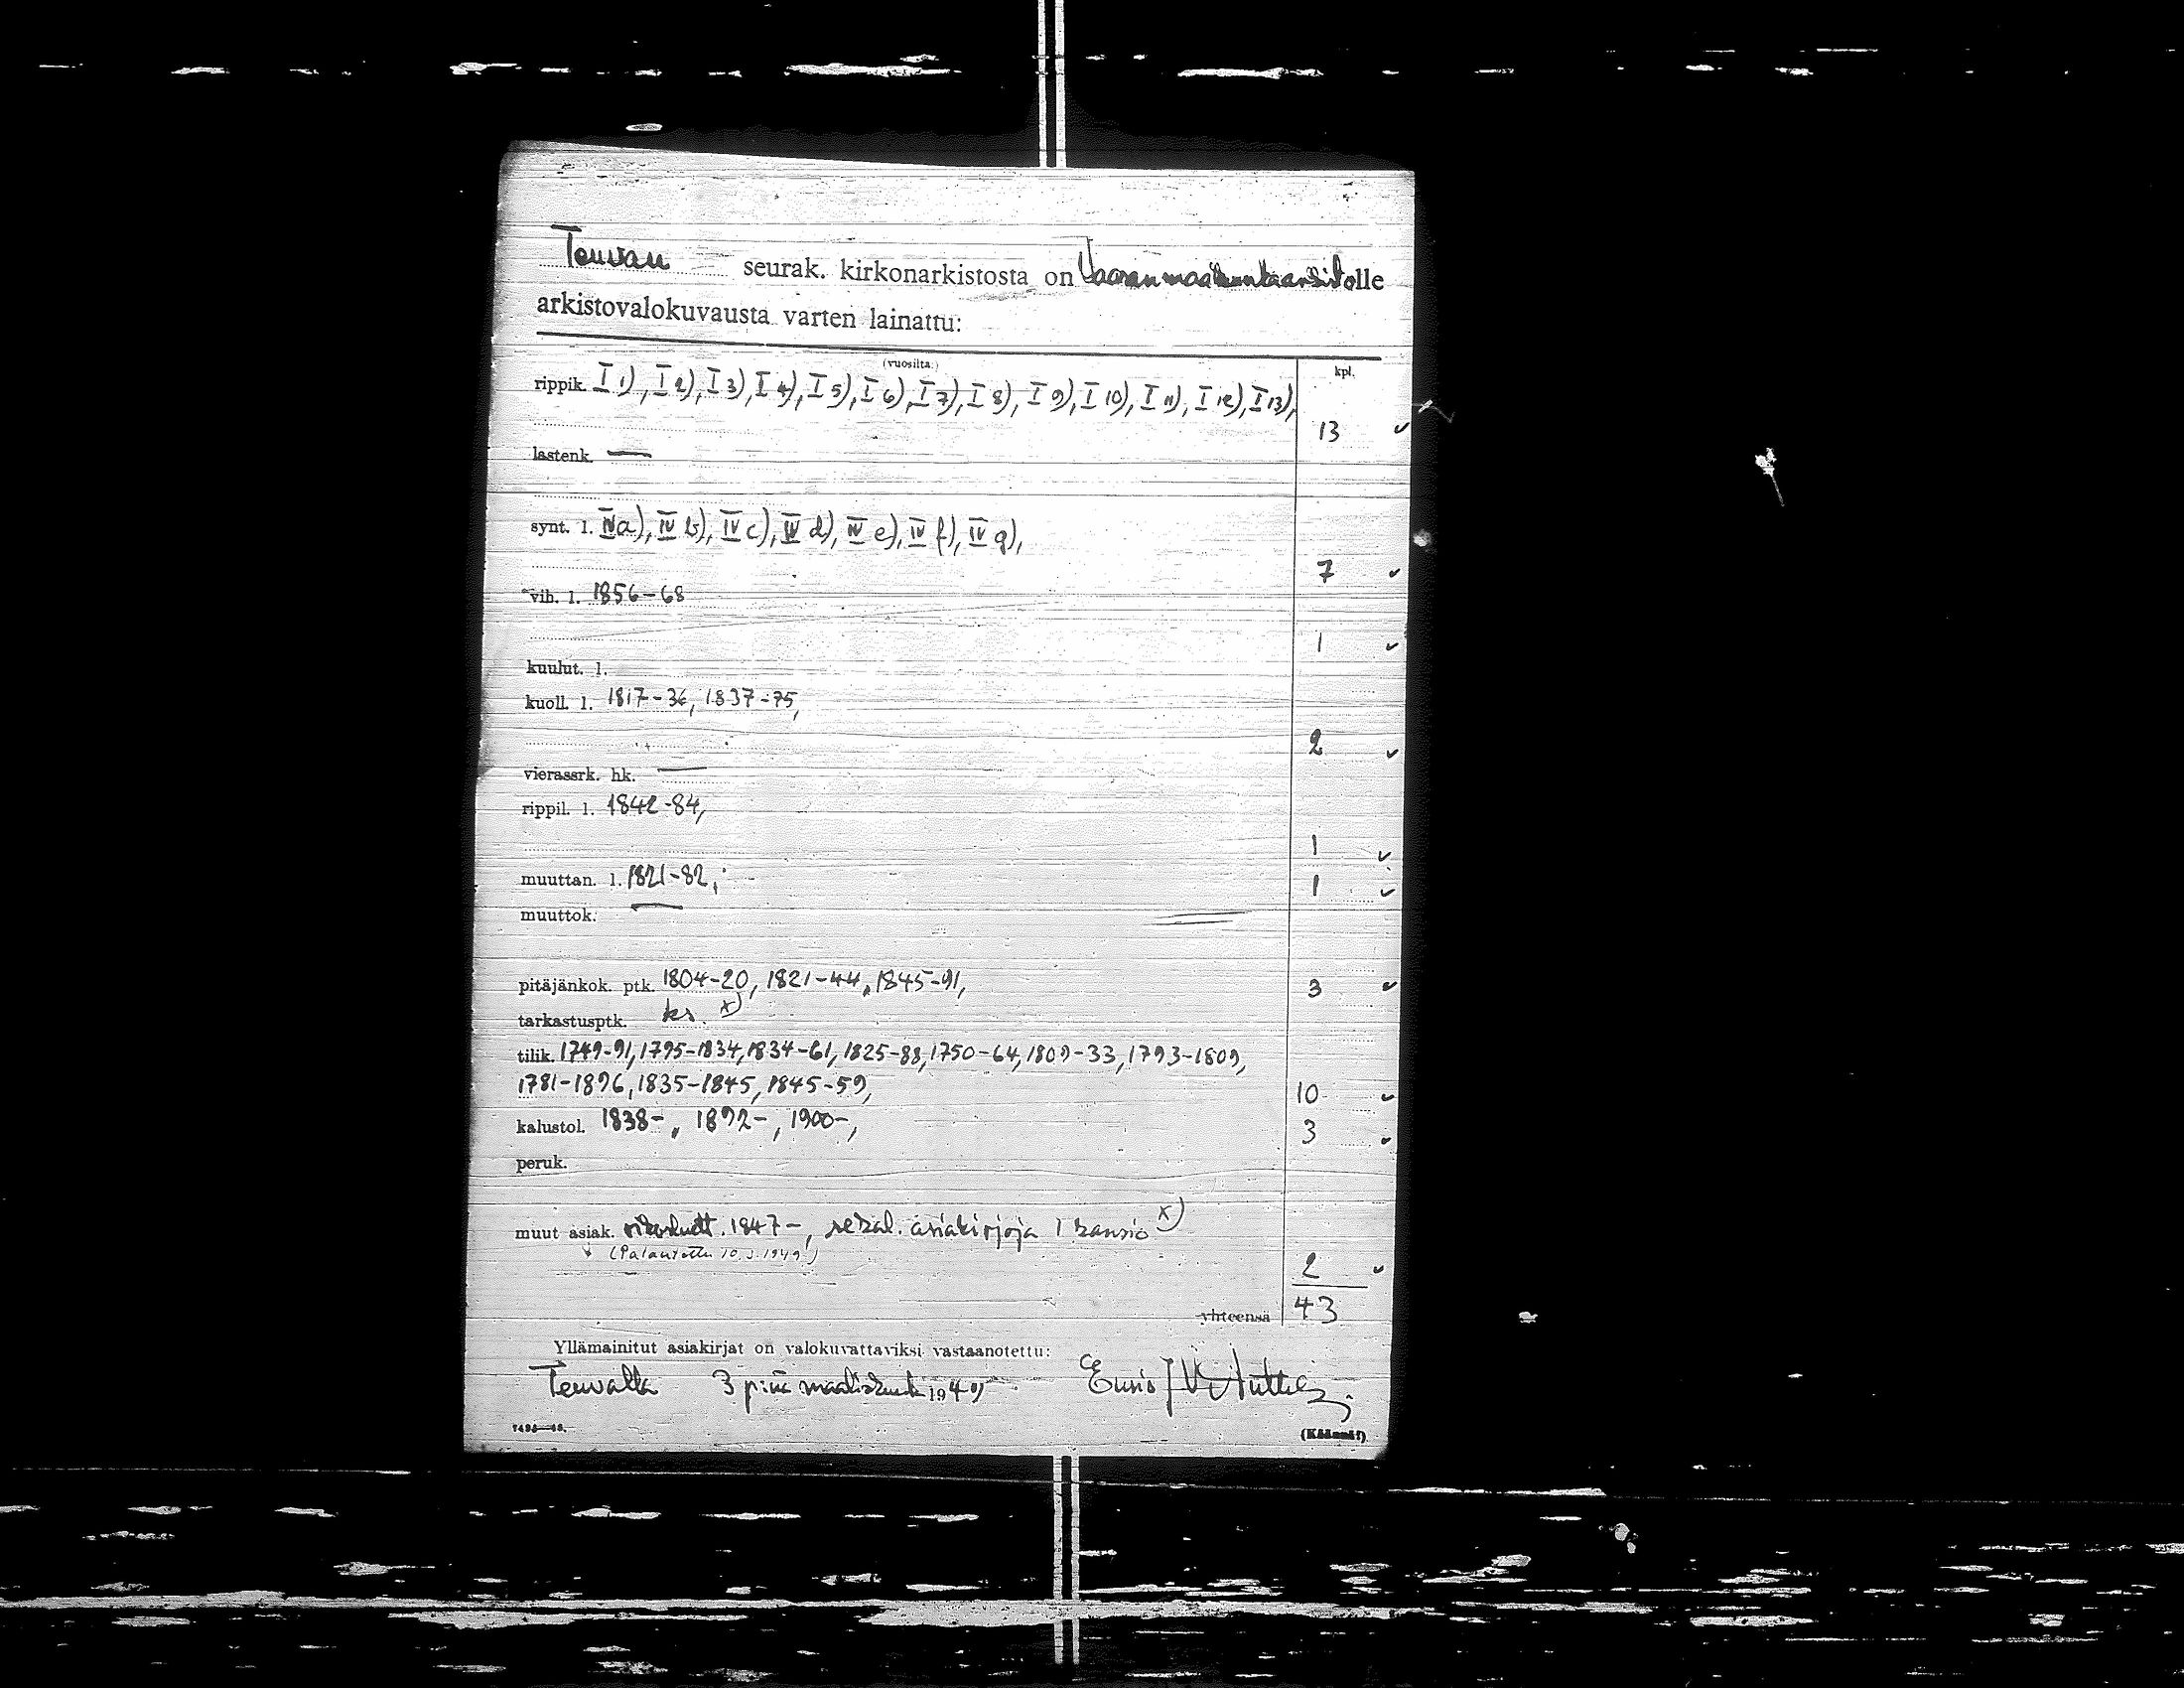 Teuvan seurak. kirkonarkistosta on Vaasan maakuntaarkistolle
arkistovalokuvausta varten lainattu:
(vuosilta:) kpl.
rippik. I 1), I 2), I 3), I 4), I 5), I 6), I 7), I 8), I 9), I 10), I 11), I 12), I 13),
13
lastenk. —
synt. l. IV a), IV b), IV c), IV d), IV e), IV f), IV g),
7
vih. l. 1856-68
1
kuulut. l.
kuoll. l. 1817-36, 1837-75,
2
vierassrk. hk. —
rippil. l. 1842-84,
1
muuttan. l. 1821-82, 1
muuttok. —
pitäjänkok. ptk. 1804-20, 1821-44, 1845-91, 3
tarkastusptk. ks. x)
tilik. 1749-91, 1795-1834, 1834-61, 1825-88, 1750-64, 1809-33, 1793-1809,
1781-1896, 1835-1845, 1845-59, 10
kalustol. 1838-, 1892-, 1900-, 3
peruk.
muut asiak. 1847-, sekal. asiakirjoja 1 kansio x)
(Palautettu 10.3.1949)
2
yhteensä 43
Yllämainitut asiakirjat on valokuvattaviksi vastaanotettu:
Teuvalla 3 p:nä maaliskuuta 1949
(Käännä!)